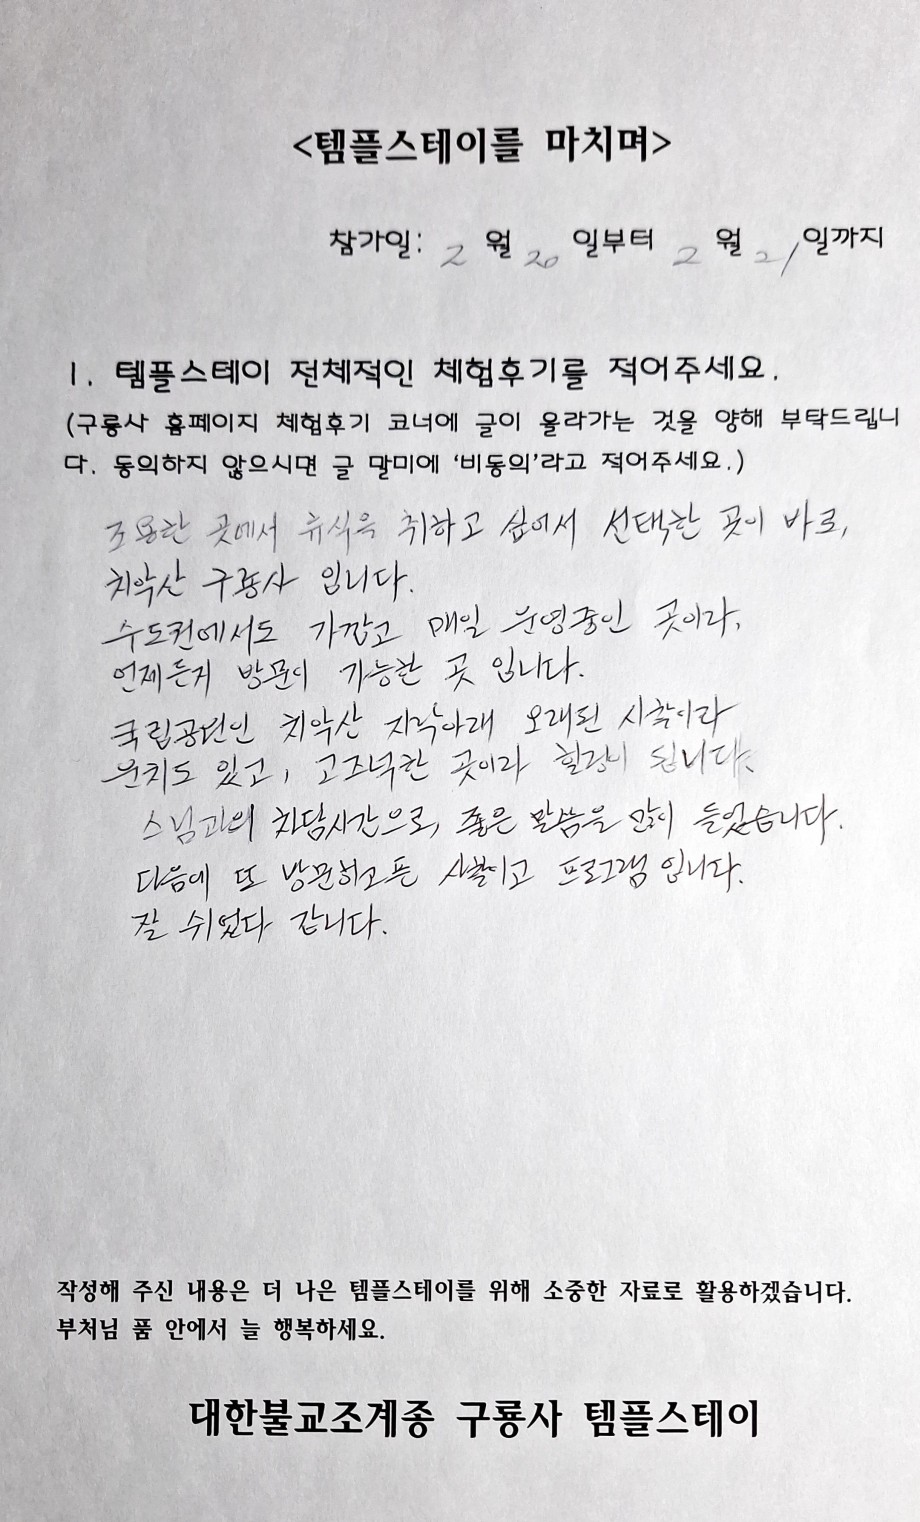 <템플스테이를 마치며>
참가일: 2 월 20 일부터 2 월 21 일까지
1. 템플스테이 전체적인 체험후기를 적어주세요.
(구룡사 홈페이지 체험후기 코너에 글이 올라가는 것을 양해 부탁드립니
다. 동의하지 않으시면 글 말미에 '비동의'라고 적어주세요.)
조용한 곳에서 휴식을 취하고 싶어서 선택한 곳이 바로,
치악산 구룡사 입니다.
수도권에서도 가깝고 매일 운영중인 곳이라,
언제든지 방문이 가능한 곳 입니다.
국립공원인 치악산 자락아래 오래된 사찰이라
운치도 있고, 고즈넉한 곳이라 힐링이 됩니다.
스님과의 차담시간으로, 좋은 말씀을 많이 들었습니다.
다음에 또 방문하고픈 사찰이고 프로그램 입니다.
잘 쉬었다 갑니다.
작성해 주신 내용은 더 나은 템플스테이를 위해 소중한 자료로 활용하겠습니다.
부처님 품 안에서 늘 행복하세요.
대한불교조계종 구룡사 템플스테이